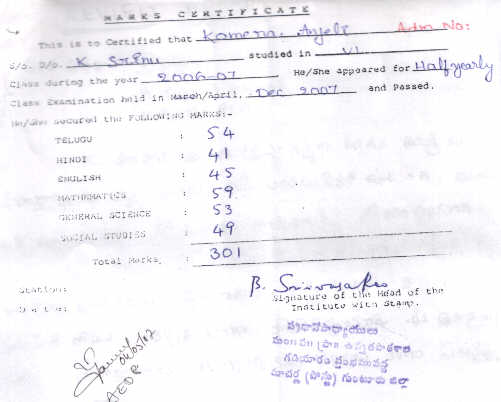 MARKS CERTIFICATE
This is to Certified that Kamena. Anjeli Adm No:
S/o. D/o. K Srinu studied in VI
Class during the year 2006-07 He/She appeared for Half yearly
Class Examination held in March/April, Dec 2007 and Passed.
He/She secured the FOLLOWING MARKS:-
TELUGU : 54
HINDI : 41
ENGLISH : 45
MATHEMATICS : 59
GENERAL SCIENCE : 53
SOCIAL STUDIES : 49
Total Marks. : 301
Station:
Date:
B. Srinivasa Rao
Signature of the Head of the
Institute with Stamp.
ప్రధానోపాధ్యాయులు
గుంటూరు జిల్లా
AEDP